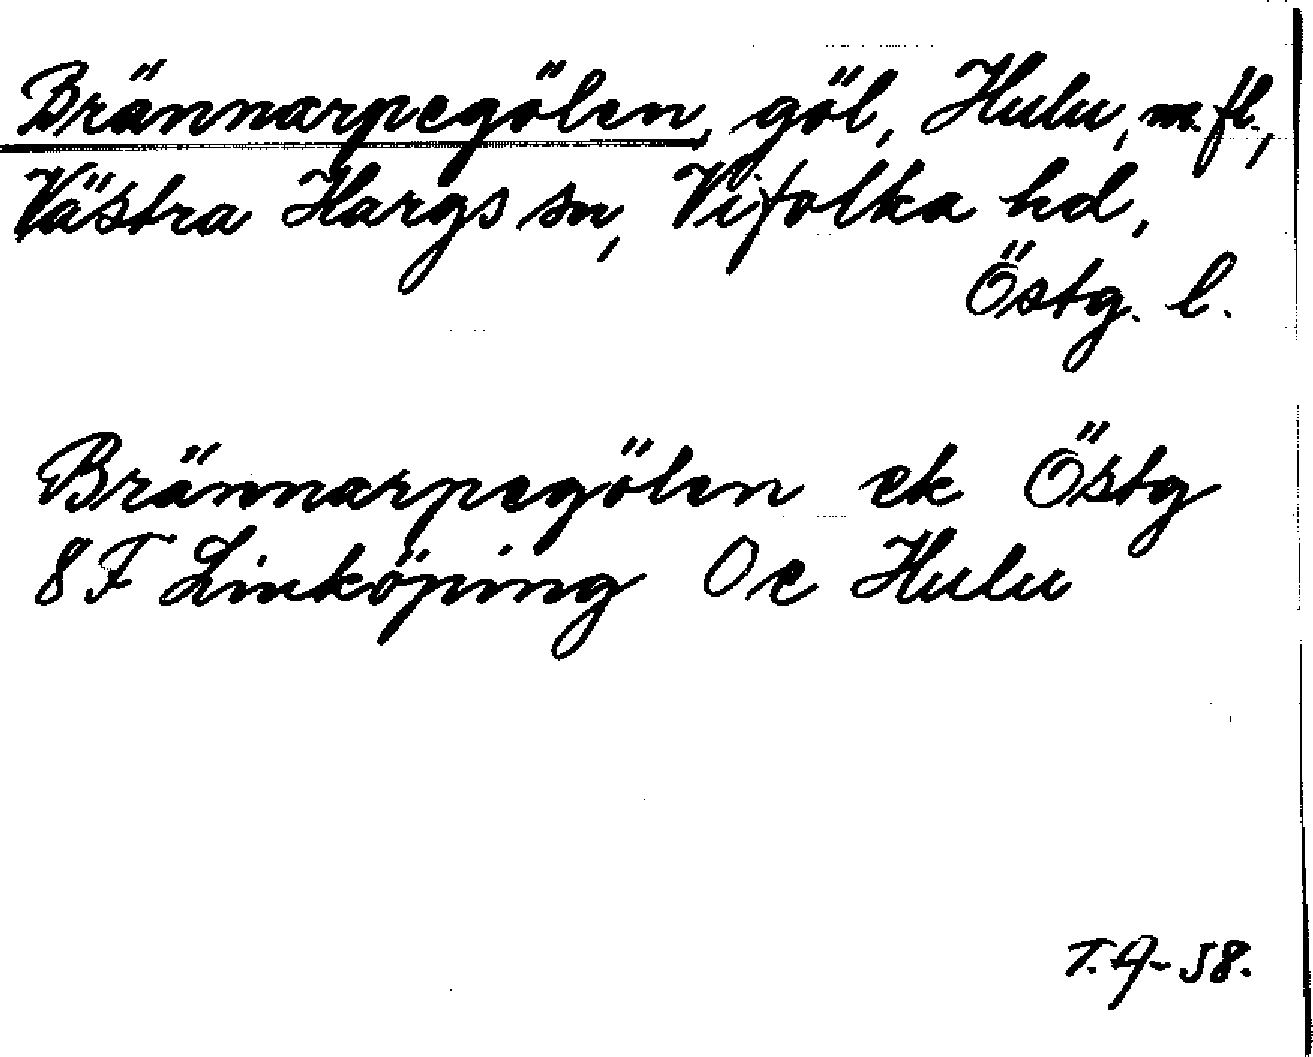 Brännarpegölen, göl, Hulu, m.fl.,
Västra Hargs sn, Vifolka hd,
Östg. l.
Brännarpegölen ek Östg
8F Linköping 0e Hulu
T.A-58.